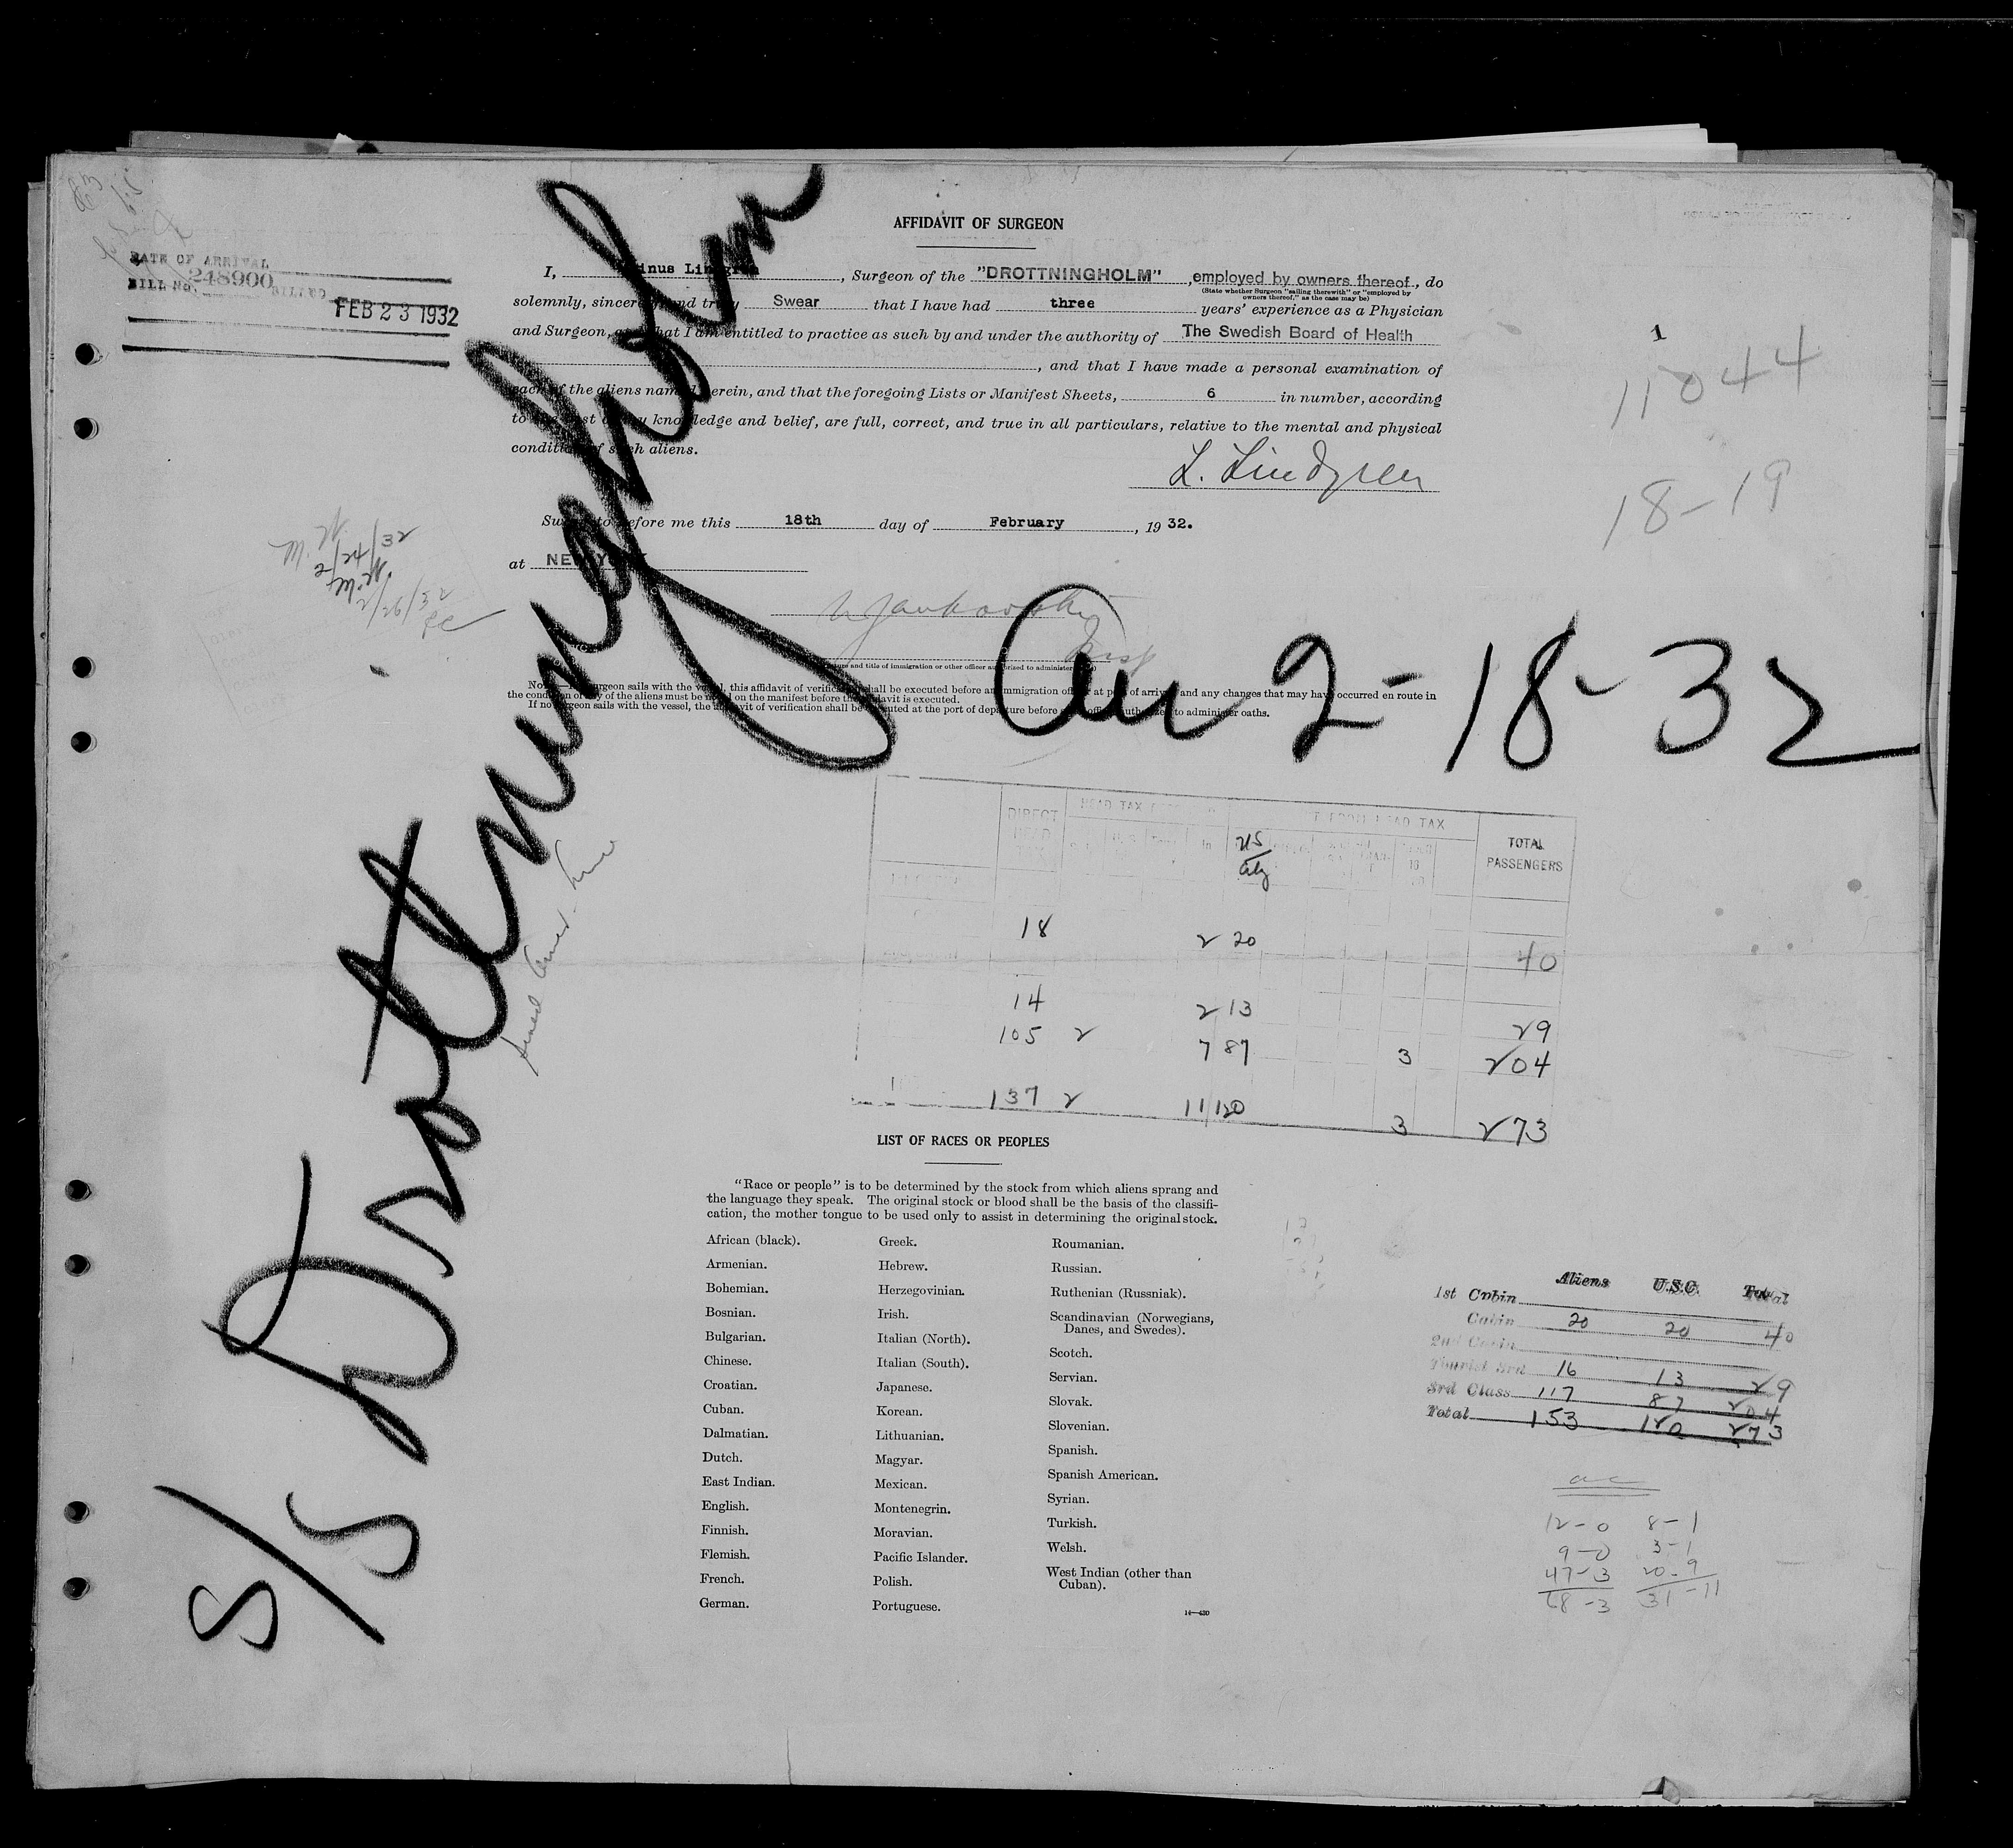 AFFIDAVIT OF SURGEON
DATE OF ARRIVAL
BILL No. 248900 BILLED
FEB 23 1932
I, Linus Lindgren, Surgeon of the "DROTTNINGHOLM", employed by owners thereof, do
(State whether Surgeon "sailing therewith" or "employed by
owners thereof," as the case may be)
solemnly, sincerely, and truly Swear that I have had three years' experience as a Physician
and Surgeon, and that I am entitled to practice as such by and under the authority of The Swedish Board of Health
, and that I have made a personal examination of
each of the aliens named herein, and that the foregoing Lists or Manifest Sheets, 6 in number, according
to the best of my knowledge and belief, are full, correct, and true in all particulars, relative to the mental and physical
condition of such aliens.
L. Lindgren
Sworn to before me this 18th day of February, 1932.
at NEW YORK
1
11044
18-19
S/S Drottningholm
Arr 2-18-32
(Signature and title of immigration or other officer authorized to administer oaths)
NOTE.—If surgeon sails with the vessel, this affidavit of verification shall be executed before an immigration officer at port of arrival and any changes that may have occurred en route in
the condition of any of the aliens must be noted on the manifest before the affidavit is executed.
If no surgeon sails with the vessel, the affidavit of verification shall be executed at the port of departure before an officer authorized to administer oaths.
DIRECT HEAD TAX HEAD TAX TOTAL PASSENGERS
US
18 2 20 40
14 2 13 29
105 2 7 87 3 204
137 2 11 120 3 273
LIST OF RACES OR PEOPLES
"Race or people" is to be determined by the stock from which aliens sprang and
the language they speak. The original stock or blood shall be the basis of the classifi-
cation, the mother tongue to be used only to assist in determining the original stock.
African (black).
Armenian.
Bohemian.
Bosnian.
Bulgarian.
Chinese.
Croatian.
Cuban.
Dalmatian.
Dutch.
East Indian.
English.
Finnish.
Flemish.
French.
German.
Greek.
Hebrew.
Herzegovinian.
Irish.
Italian (North).
Italian (South).
Japanese.
Korean.
Lithuanian.
Magyar.
Mexican.
Montenegrin.
Moravian.
Pacific Islander.
Polish.
Portuguese.
Roumanian.
Russian.
Ruthenian (Russniak).
Scandinavian (Norwegians,
Danes, and Swedes).
Scotch.
Servian.
Slovak.
Slovenian.
Spanish.
Spanish American.
Syrian.
Turkish.
Welsh.
West Indian (other than
Cuban).
14—430
Aliens U.S.C. Total
1st Cabin
Cabin 20 20 40
2nd Cabin
Tourist 3rd 16 13 29
3rd Class 117 87 204
Total 153 120 273
12-0 8-1
9-0 3-1
47-3 20-9
68-3 31-11